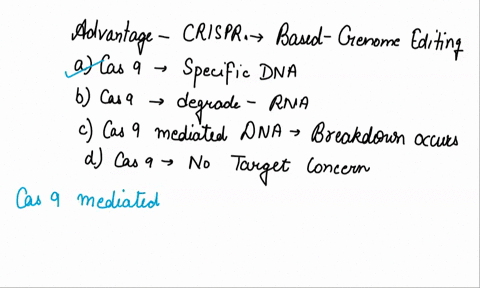 Advantage - CRISPR. → Based-Genome Editing
a) Cas 9 → Specific DNA
b) Cas 9 → degrade - RNA
c) Cas 9 mediated DNA → Breakdown occurs
d) Cas 9 → No Target Concern
Cas 9 mediated